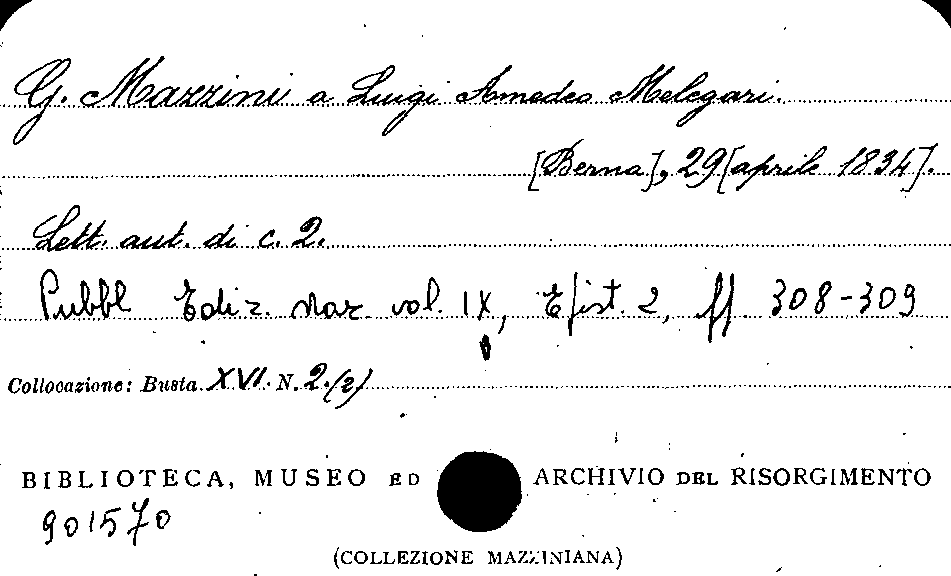 G. Mazzini a Luigi Amedeo Melegari.
[Berna], 29 [aprile 1834].
Lett. aut. di c. 2.
Pubbl Ediz. Naz. vol. IX, Epist. 2, pp. 308-309
Collocazione: Busta XVI. N. 2.(2)
BIBLIOTECA, MUSEO ED ARCHIVIO DEL RISORGIMENTO
901570
(COLLEZIONE MAZZINIANA)